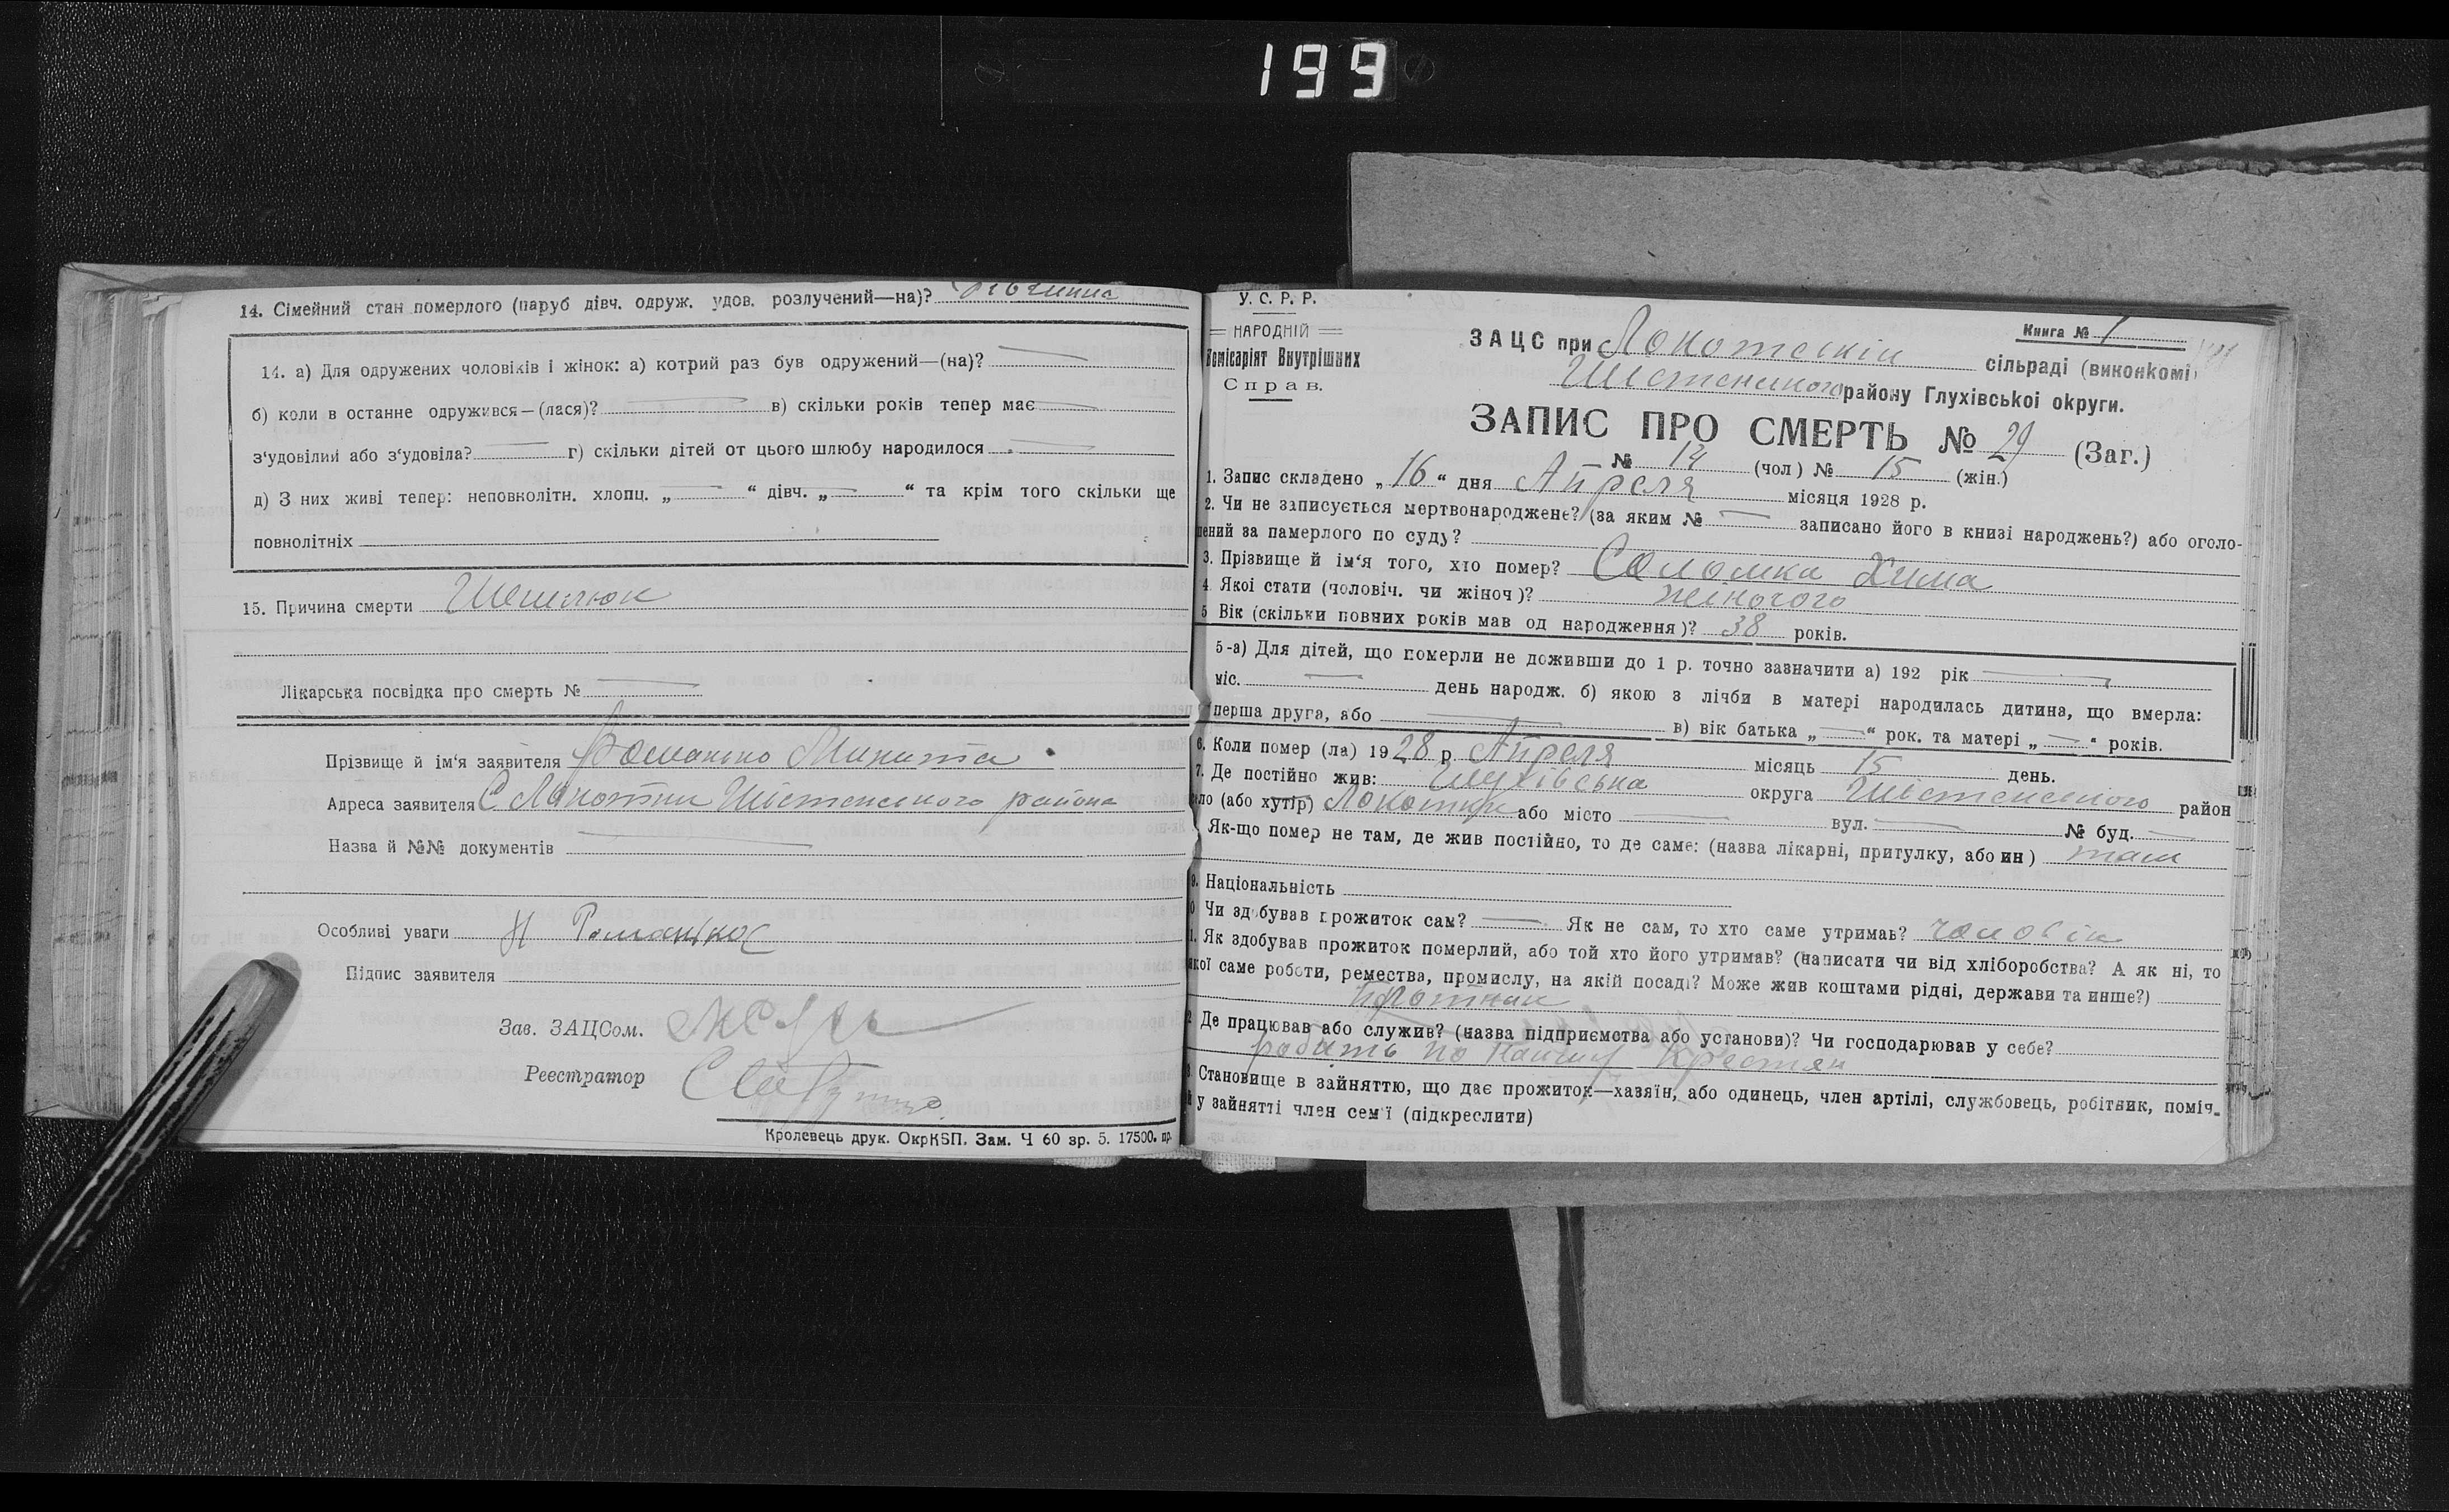 199
14. Сімейний стан померлого (паруб дівч. одруж. удов. розлучений—на)? Дівчинка
14. а) Для одружених чоловіків і жінок: а) котрий раз був одружений—(на)?
б) коли в останне одружився—(лася)? в) скільки років тепер має
з'удовілий або з'удовіла? г) скільки дітей от цього шлюбу народилося
д) З них живі тепер: неповнолітн. хлопц. „ “ дівч. „ “ та крім того скільки ще
повнолітніх
15. Причина смерти
Лікарська посвідка про смерть №
Прізвище й ім'я заявителя Романько Микита
Адреса заявителя С Локотки Шістенського района
Назва й №№ документів
Особливі уваги Н Романько
Підпис заявителя
Зав. ЗАЦСом.
Реестратор
Кролевець друк. ОкрКВП. Зам. Ч 60 зр. 5. 17500. пр.
У. С. Р. Р.
НАРОДНІЙ
Комісаріят Внутрішних
Справ.
Книга № 1
ЗАЦС при Локотскій сільраді (виконкомі)
Шістенского району Глухівської округи.
ЗАПИС ПРО СМЕРТЬ № 29 (Заг.)
№ 14 (чол) № 15 (жін.)
1. Запис складено „16“ дня Апреля місяця 1928 р.
2. Чи не записується мертвонароджене? (за яким № записано його в книзі народжень?) або оголо-
шений за памерлого по суду?
3. Прізвище й ім'я того, хто помер? Соломка Хима
4 Якої стати (чоловіч. чи жіноч)? жіночого
5 Вік (скільки повних років мав од народження)? 38 років.
5-а) Для дітей, що померли не доживши до 1 р. точно зазначити а) 192 рік
міс. день народж. б) якою з лічби в матері народилась дитина, що вмерла:
перша друга, або в) вік батька „ “ рок. та матері „ “ років.
6. Коли помер (ла) 1928 р Апреля місяць 15 день.
7. Де постійно жив: Глухівська округа Шістенського район
село (або хутір) Локотки або місто вул. № буд.
Як-що помер не там, де жив постійно, то де саме: (назва лікарні, притулку, або ин) там
9. Національність
0 Чи здобував прожиток сам? Як не сам, то хто саме утримав? чоловік
1. Як здобував прожиток померлий, або той хто його утримав? (написати чи від хліборобства? А як ні, то
якої саме роботи, ремества, промислу, на якій посаді? Може жив коштами рідні, держави та инше?)
плотник
2 Де працював або служив? (назва підприємства або установи)? Чи господарював у себе?
робить по найму крестян
3. Становище в зайняттю, що дає прожиток—хазяїн, або одинець, член артілі, службовець, робітник, поміч-
у зайнятті член сем'ї (підкреслити)